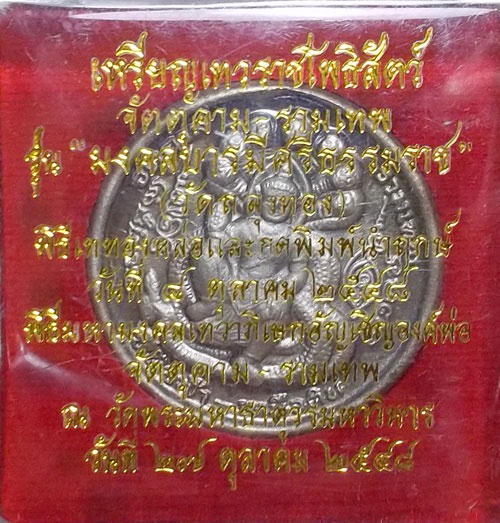 เหรียญเทวราชโพธิสัตว์
จตุคาม - รามเทพ
รุ่น "มงคลบารมีศรีธรรมราช"
(วัดถลุงทอง)
พิธีเททองหล่อและกดพิมพ์นำฤกษ์
วันที่ ๘ ตุลาคม ๒๕๔๘
พิธีมหามงคลเทวาภิเษกอัญเชิญองค์พ่อ
จตุคาม - รามเทพ
ณ วัดพระมหาธาตุวรมหาวิหาร
วันที่ ๒๗ ตุลาคม ๒๕๔๘